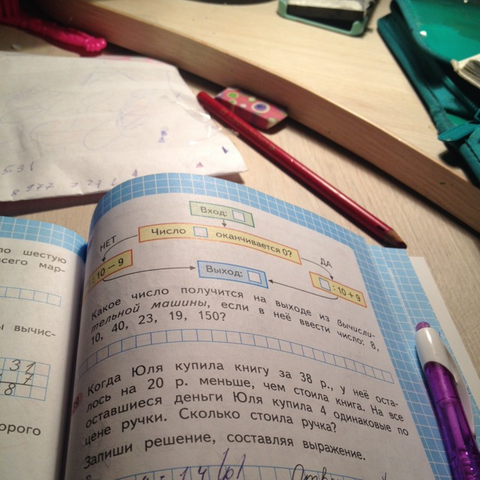 Вход:
Число оканчивается 0?
НЕТ
ДА
· 10 − 9
Выход:
: 10 + 9
Какое число получится на выходе из вычисли-
тельной машины, если в неё ввести число: 8,
10, 40, 23, 19, 150?
Когда Юля купила книгу за 38 р., у неё оста-
лось на 20 р. меньше, чем стоила книга. На все
оставшиеся деньги Юля купила 4 одинаковые по
цене ручки. Сколько стоила ручка?
Запиши решение, составляя выражение.
шестую
всего мар-
вычис-
31
7
8
орого